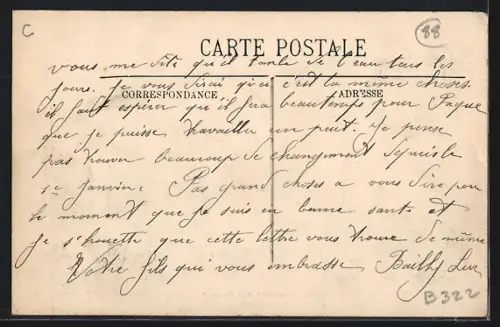 C
88
CARTE POSTALE
vous me dite qu'il tombe de l'eau tous les
jours. Je vous dirai qu'ici c'est la même choses
CORRESPONDANCE
ADRESSE
il faut espérer qu'il fera beau temps pour Paque
que je puisse travailler un peut. Je pense
pas trouver beaucoup de changement depuis le
1er janvier. Pas grand choses a vous dire pour
le moment que je suis en bonne santé et
je s'houette que cette lettre vous trouve de même
Votre fils qui vous embrasse Bailly
B322